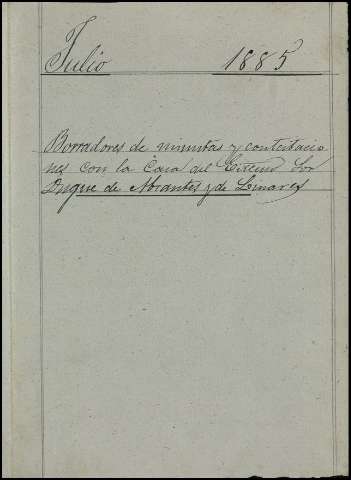 Julio 1885
Borradores de minutas y contestacio
nes con la Casa del Excmo Sor
Duque de Abrantes y de Linares